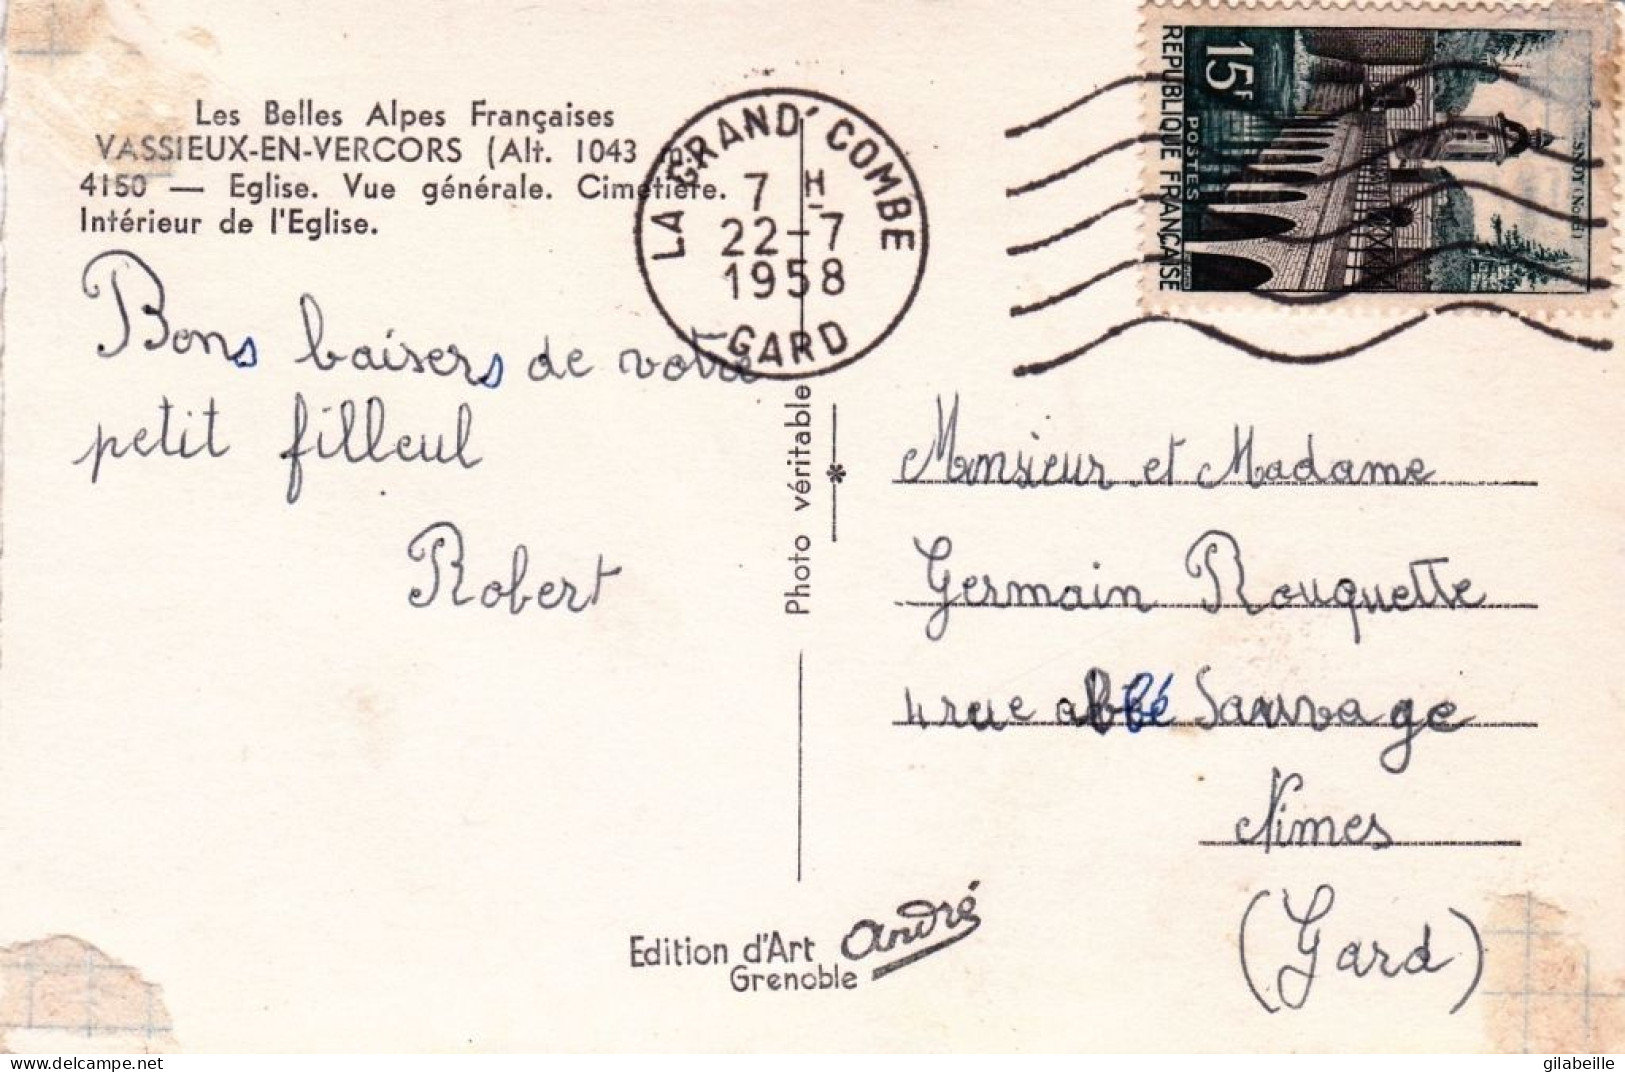 Les Belles Alpes Françaises
VASSIEUX-EN-VERCORS (Alt. 1043 m.)
4150 — Eglise. Vue générale. Cimetière.
Intérieur de l'Eglise.
LA GRAND' COMBE
7 H
22-7
1958
GARD
15F
POSTES
REPUBLIQUE FRANÇAISE
Bons baisers de votre
petit filleul
Robert
Photo véritable
*
Monsieur et Madame
Germain Rouquette
4 rue abbé Sauvage
Nimes
(Gard)
Edition d'Art André
Grenoble
delcampe.net
gilabeille